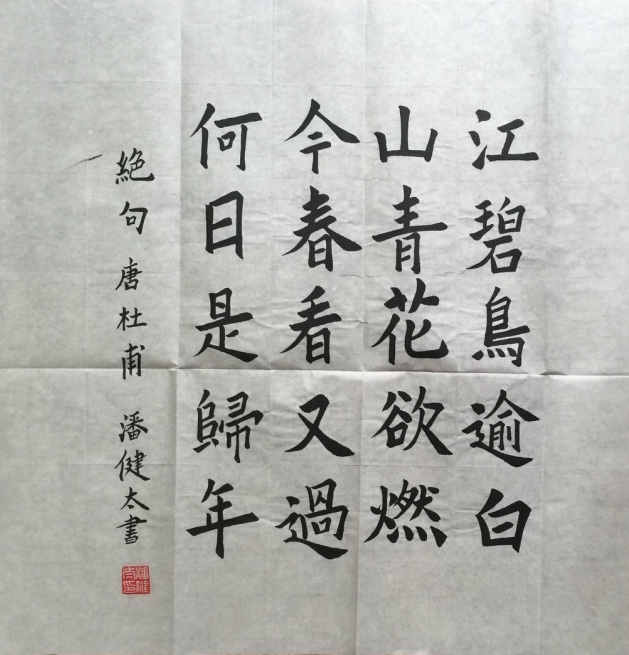 江碧鳥逾白
山青花欲燃
今春看又過
何日是歸年
絶句 唐 杜甫 潘健太書